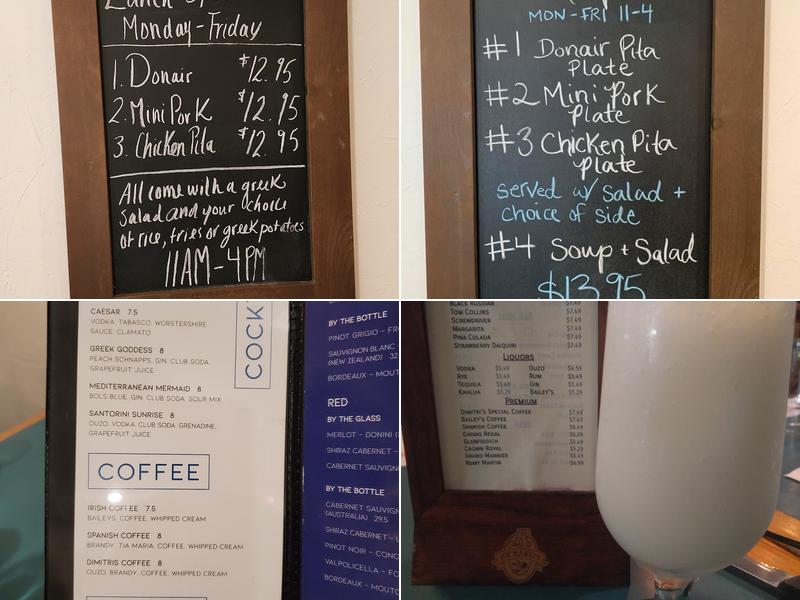 Monday-Friday
1. Donair $12.95
2. Mini Pork $12.95
3. Chicken Pita $12.95
All come with a greek
salad and your choice
of rice, fries or greek potatoes
11AM-4PM
MON-FRI 11-4
#1 Donair Pita
Plate
#2 Mini Pork
Plate
#3 Chicken Pita
plate
served w/ salad +
choice of side
#4 Soup + Salad
$13.95
CAESAR 7.5
VODKA, TABASCO, WORSTERSHIRE
SAUCE, CLAMATO
GREEK GODDESS 8
PEACH SCHNAPPS, GIN, CLUB SODA,
GRAPEFRUIT JUICE
MEDITERRANEAN MERMAID 8
BOLS BLUE, GIN, CLUB SODA, SOUR MIX
SANTORINI SUNRISE 8
OUZO, VODKA, CLUB SODA, GRENADINE,
GRAPEFRUIT JUICE
COCKT
COFFEE
IRISH COFFEE 7.5
BAILEYS, COFFEE, WHIPPED CREAM
SPANISH COFFEE 8
BRANDY, TIA MARIA, COFFEE, WHIPPED CREAM
DIMITRIS COFFEE 8
OUZO, BRANDY, COFFEE, WHIPPED CREAM
BY THE BOTTLE
PINOT GRIGIO - FR
SAUVIGNON BLANC
(NEW ZEALAND) 32
BORDEAUX - MOUT
RED
BY THE GLASS
MERLOT - DONINI (
SHIRAZ CABERNET -
CABERNET SAUVIGN
BY THE BOTTLE
CABERNET SAUVIG
(AUSTRALIA) 29.5
SHIRAZ CABERNET - L
PINOT NOIR - CONO
VALPOLICELLA - FO
BORDEAUX - MOUTO
BLACK RUSSIAN $7.49
TOM COLLINS $7.49
SCREWDRIVER $7.49
MARGARITA $7.49
PINA COLADA $7.49
STRAWBERRY DAIQUIRI $7.49
LIQUORS
VODKA $5.49 OUZO $4.59
RYE $5.49 RUM $5.49
TEQUILA $5.49 GIN $5.49
KAHLUA $5.29 BAILEY'S $5.29
PREMIUM
DIMITRI'S SPECIAL COFFEE $7.49
BAILEY'S COFFEE $7.49
SPANISH COFFEE $8.49
CHIVAS REGAL $8.29
GLENFIDDICH $5.49
CROWN ROYAL $5.23
GRAND MARNIER $6.49
REMY MARTIN $6.99
RICKARD'S